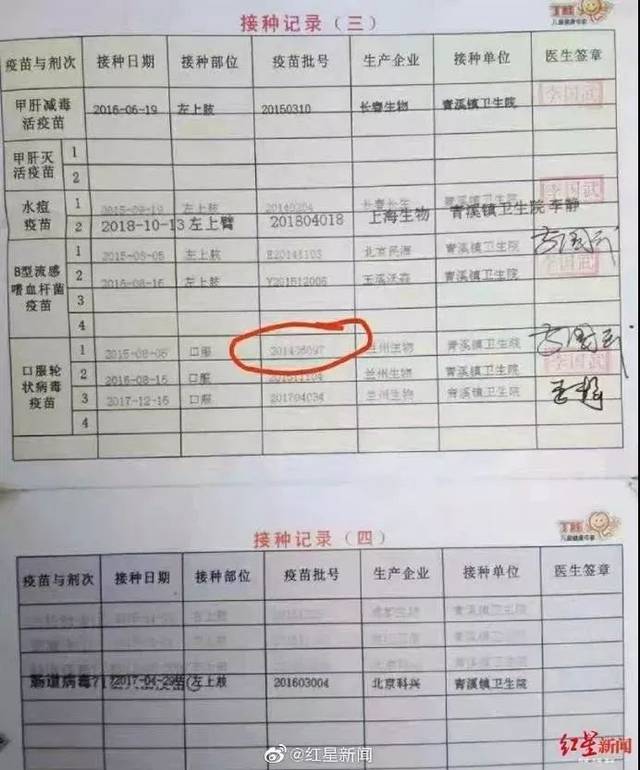 接种记录（三）
疫苗与剂次 接种日期 接种部位 疫苗批号 生产企业 接种单位 医生签章
甲肝减毒活疫苗 2016-06-19 左上肢 20150310 长春生物 青溪镇卫生院 李国武
甲肝灭活疫苗 1
2
水痘疫苗 1 2015-09-19 左上肢 20140204 长春长生 青溪镇卫生院 李国武
2 2018-10-13 左上臂 201804018 上海生物 青溪镇卫生院 李静
B型流感嗜血杆菌疫苗 1 左上肢 北京民海 青溪镇卫生院
2 左上肢 玉溪沃森 青溪镇卫生院 李国武
3
4
口服轮状病毒疫苗 1 口服 兰州生物 青溪镇卫生院
2 2016-08-15 口服 兰州生物 青溪镇卫生院 李国武
3 2017-12-16 口服 201704034 兰州生物 青溪镇卫生院
4
接种记录（四）
疫苗与剂次 接种日期 接种部位 疫苗批号 生产企业 接种单位 医生签章
左上肢 青溪镇卫生院
青溪镇卫生院
青溪镇卫生院
肠道病毒71 2017-04-29 左上肢 201603004 北京科兴 青溪镇卫生院
@红星新闻
红星新闻